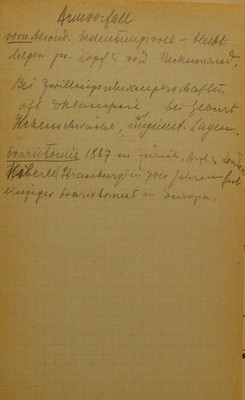 Armvorfall
vorn besond. bedeutungsvoll - bleibt
liegen zw. Kopf u. vord. Beckenwand.
Bei Zwillingsschwangerschaften
oft Eklampsie bei Geburt
Wehenschwäche, ungünst. Lagen.
Ovariotomie 1867 in Zürich,
Köberle (Strassburg) in 70er Jahren fast
einziger Ovariotomist in Europa.